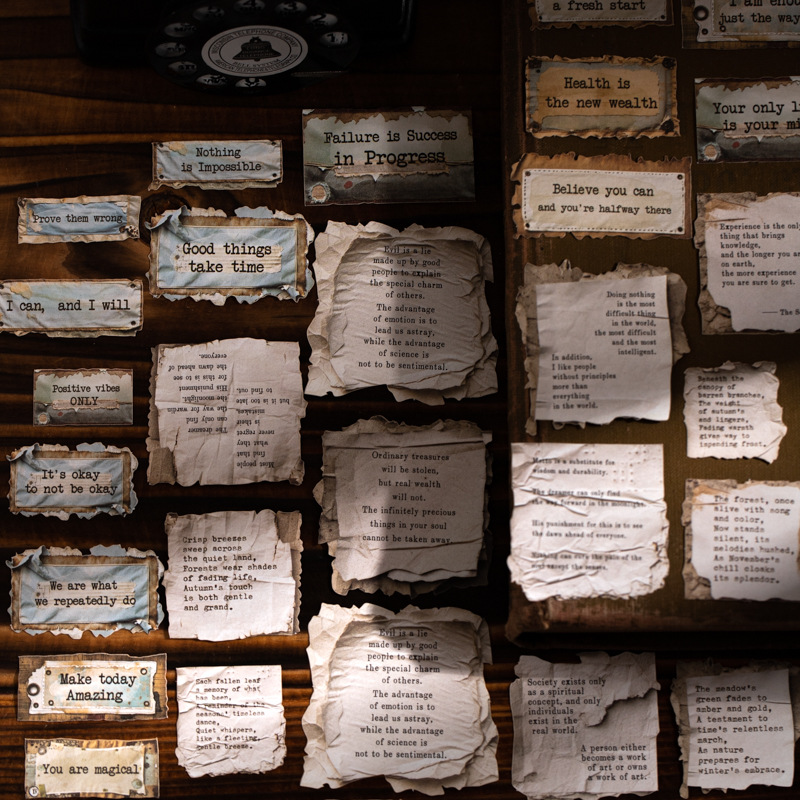 a fresh start
I am enou
just the way
Health is
the new wealth
Your only li
is your mi
Failure is Success
in Progress
Nothing
is Impossible
Believe you can
and you're halfway there
Prove them wrong
Good things
take time
I can, and I will
Experience is the only
thing that brings
knowledge,
and the longer you are
on earth,
the more experience
you are sure to get.
Evil is a lie
made up by good
people to explain
the special charm
of others.
The advantage
of emotion is to
lead us astray,
while the advantage
of science is
not to be sentimental.
Doing nothing
is the most
difficult thing
in the world,
the most difficult
and the most
intelligent.
In addition,
I like people
without principles
more than
everything
in the world.
Positive vibes
ONLY
The dreamer
can only find
the way forward in
the moonlight.
His punishment
for this is to see
the dawn ahead of
everyone.
Most people
find that
what they
never regret
is their
mistakes,
but it is too late
to find out.
Beneath the
canopy of
Barren branches,
The weight
of autumn's
end lingers,
Fading warmth
gives way to
impending frost.
It's okay
to not be okay
Ordinary treasures
will be stolen,
but real wealth
will not.
The infinitely precious
things in your soul
cannot be taken away.
is a substitute for
wisdom and durability.
The dreamer can only find
the way forward in the moonlight.
His punishment for this is to see
the dawn ahead of everyone.
Nothing can cure the pain of the
soul except the senses.
The forest, once
alive with song
and color,
Now stands
silent, its
melodies hushed,
As November's
chill cloaks
its splendor.
Crisp breezes
sweep across
the quiet land,
Forents wear shades
of fading life,
Autumn's touch
is both gentle
and grand.
We are what
we repeatedly do
Make today
Amazing
Each fallen leaf
a memory of what
has been,
A reminder of the
seasons' timeless
dance,
Quiet whispers,
like a fleeting,
gentle breeze.
Evil is a lie
made up by good
people to explain
the special charm
of others.
The advantage
of emotion is to
lead us astray,
while the advantage
of science is
not to be sentimental.
Society exists only
as a spiritual
concept, and only
individuals
exist in the
real world.
A person either
becomes a work
of art or owns
a work of art.
The meadow's
green fades to
amber and gold,
A testament to
time's relentless
march,
As nature
prepares for
winter's embrace.
You are magical